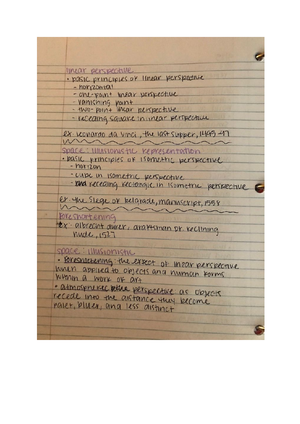 linear perspective
• basic principles of linear perspective
- horizontal
- one-point linear perspective
- vanishing point
- two-point linear perspective
- receding square in linear perspective
ex. leonardo da vinci, the last supper,
space: illusionistic representation
• basic principles of isometric perspective
- horizon
- cube in isometric perspective
- receding rectangle in isometric perspective
ex. the siege of belgrade, manuscript, 1588
foreshortening
ex. albrecht durer, draftsman or reclining
nude, 1527
space: illusionistic
• foreshortening the effect of linear perspective
when applied to objects and human forms
within a work of art
• atmospheric perspective as objects
recede into the distance they become
paler, bluer, and less distinct